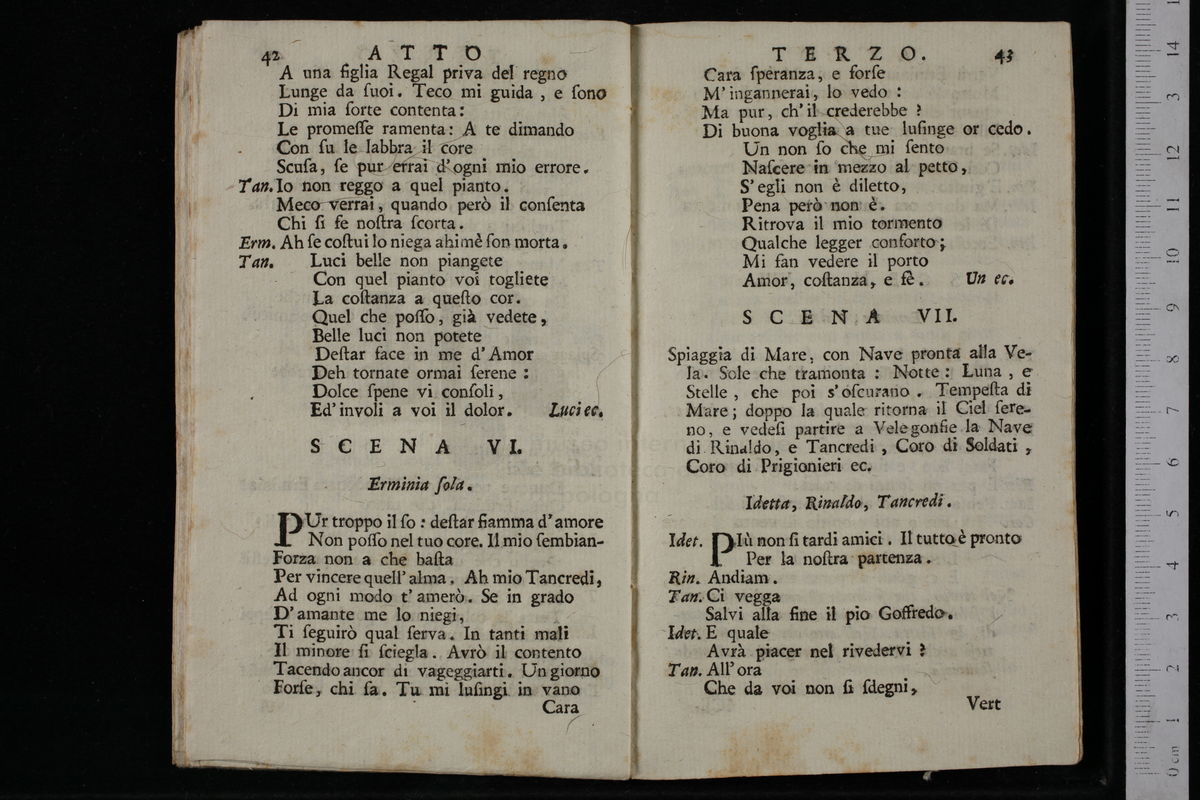 42 ATTO
A una figlia Regal priva del regno
Lunge da ſuoi. Teco mi guida, e ſono
Di mia ſorte contenta:
Le promeſſe ramenta: A te dimando
Con ſu le labbra il core
Scuſa, ſe pur errai d'ogni mio errore.
Tan. Io non reggo a quel pianto.
Meco verrai, quando però il conſenta
Chi ſi fe noſtra ſcorta.
Erm. Ah ſe coſtui lo niega ahimè ſon morta.
Tan. Luci belle non piangete
Con quel pianto voi togliete
La coſtanza a queſto cor.
Quel che poſſo, già vedete,
Belle luci non potete
Deſtar face in me d'Amor
Deh tornate ormai ſerene:
Dolce ſpene vi conſoli,
Ed'involi a voi il dolor. Luci ec.
SCENA VI.
Erminia ſola.
PUr troppo il ſo: deſtar fiamma d'amore
Non poſſo nel tuo core. Il mio ſembian-
Forza non a che baſta
Per vincere quell'alma. Ah mio Tancredi,
Ad ogni modo t'amerò. Se in grado
D'amante me lo niegi,
Ti ſeguirò qual ſerva. In tanti mali
Il minore ſi ſciegla. Avrò il contento
Tacendo ancor di vageggiarti. Un giorno
Forſe, chi ſa. Tu mi luſingi in vano
Cara
TERZO. 43
Cara ſperanza, e forſe
M'ingannerai, lo vedo:
Ma pur, ch'il crederebbe?
Di buona voglia a tue luſinge or cedo.
Un non ſo che mi ſento
Naſcere in mezzo al petto,
S'egli non è diletto,
Pena però non è.
Ritrova il mio tormento
Qualche legger conforto;
Mi fan vedere il porto
Amor, coſtanza, e fè. Un ec.
SCENA VII.
Spiaggia di Mare, con Nave pronta alla Ve-
la. Sole che tramonta: Notte: Luna, e
Stelle, che poi s'oſcurano. Tempeſta di
Mare; doppo la quale ritorna il Ciel ſere-
no, e vedeſi partire a Vele gonfie la Nave
di Rinaldo, e Tancredi, Coro di Soldati,
Coro di Prigionieri ec.
Idetta, Rinaldo, Tancredi.
Idet. PIù non ſi tardi amici. Il tutto è pronto
Per la noſtra partenza.
Rin. Andiam.
Tan. Ci vegga
Salvi alla fine il pio Goffredo.
Idet. E quale
Avrà piacer nel rivedervi?
Tan. All'ora
Che da voi non ſi ſdegni,
Vert